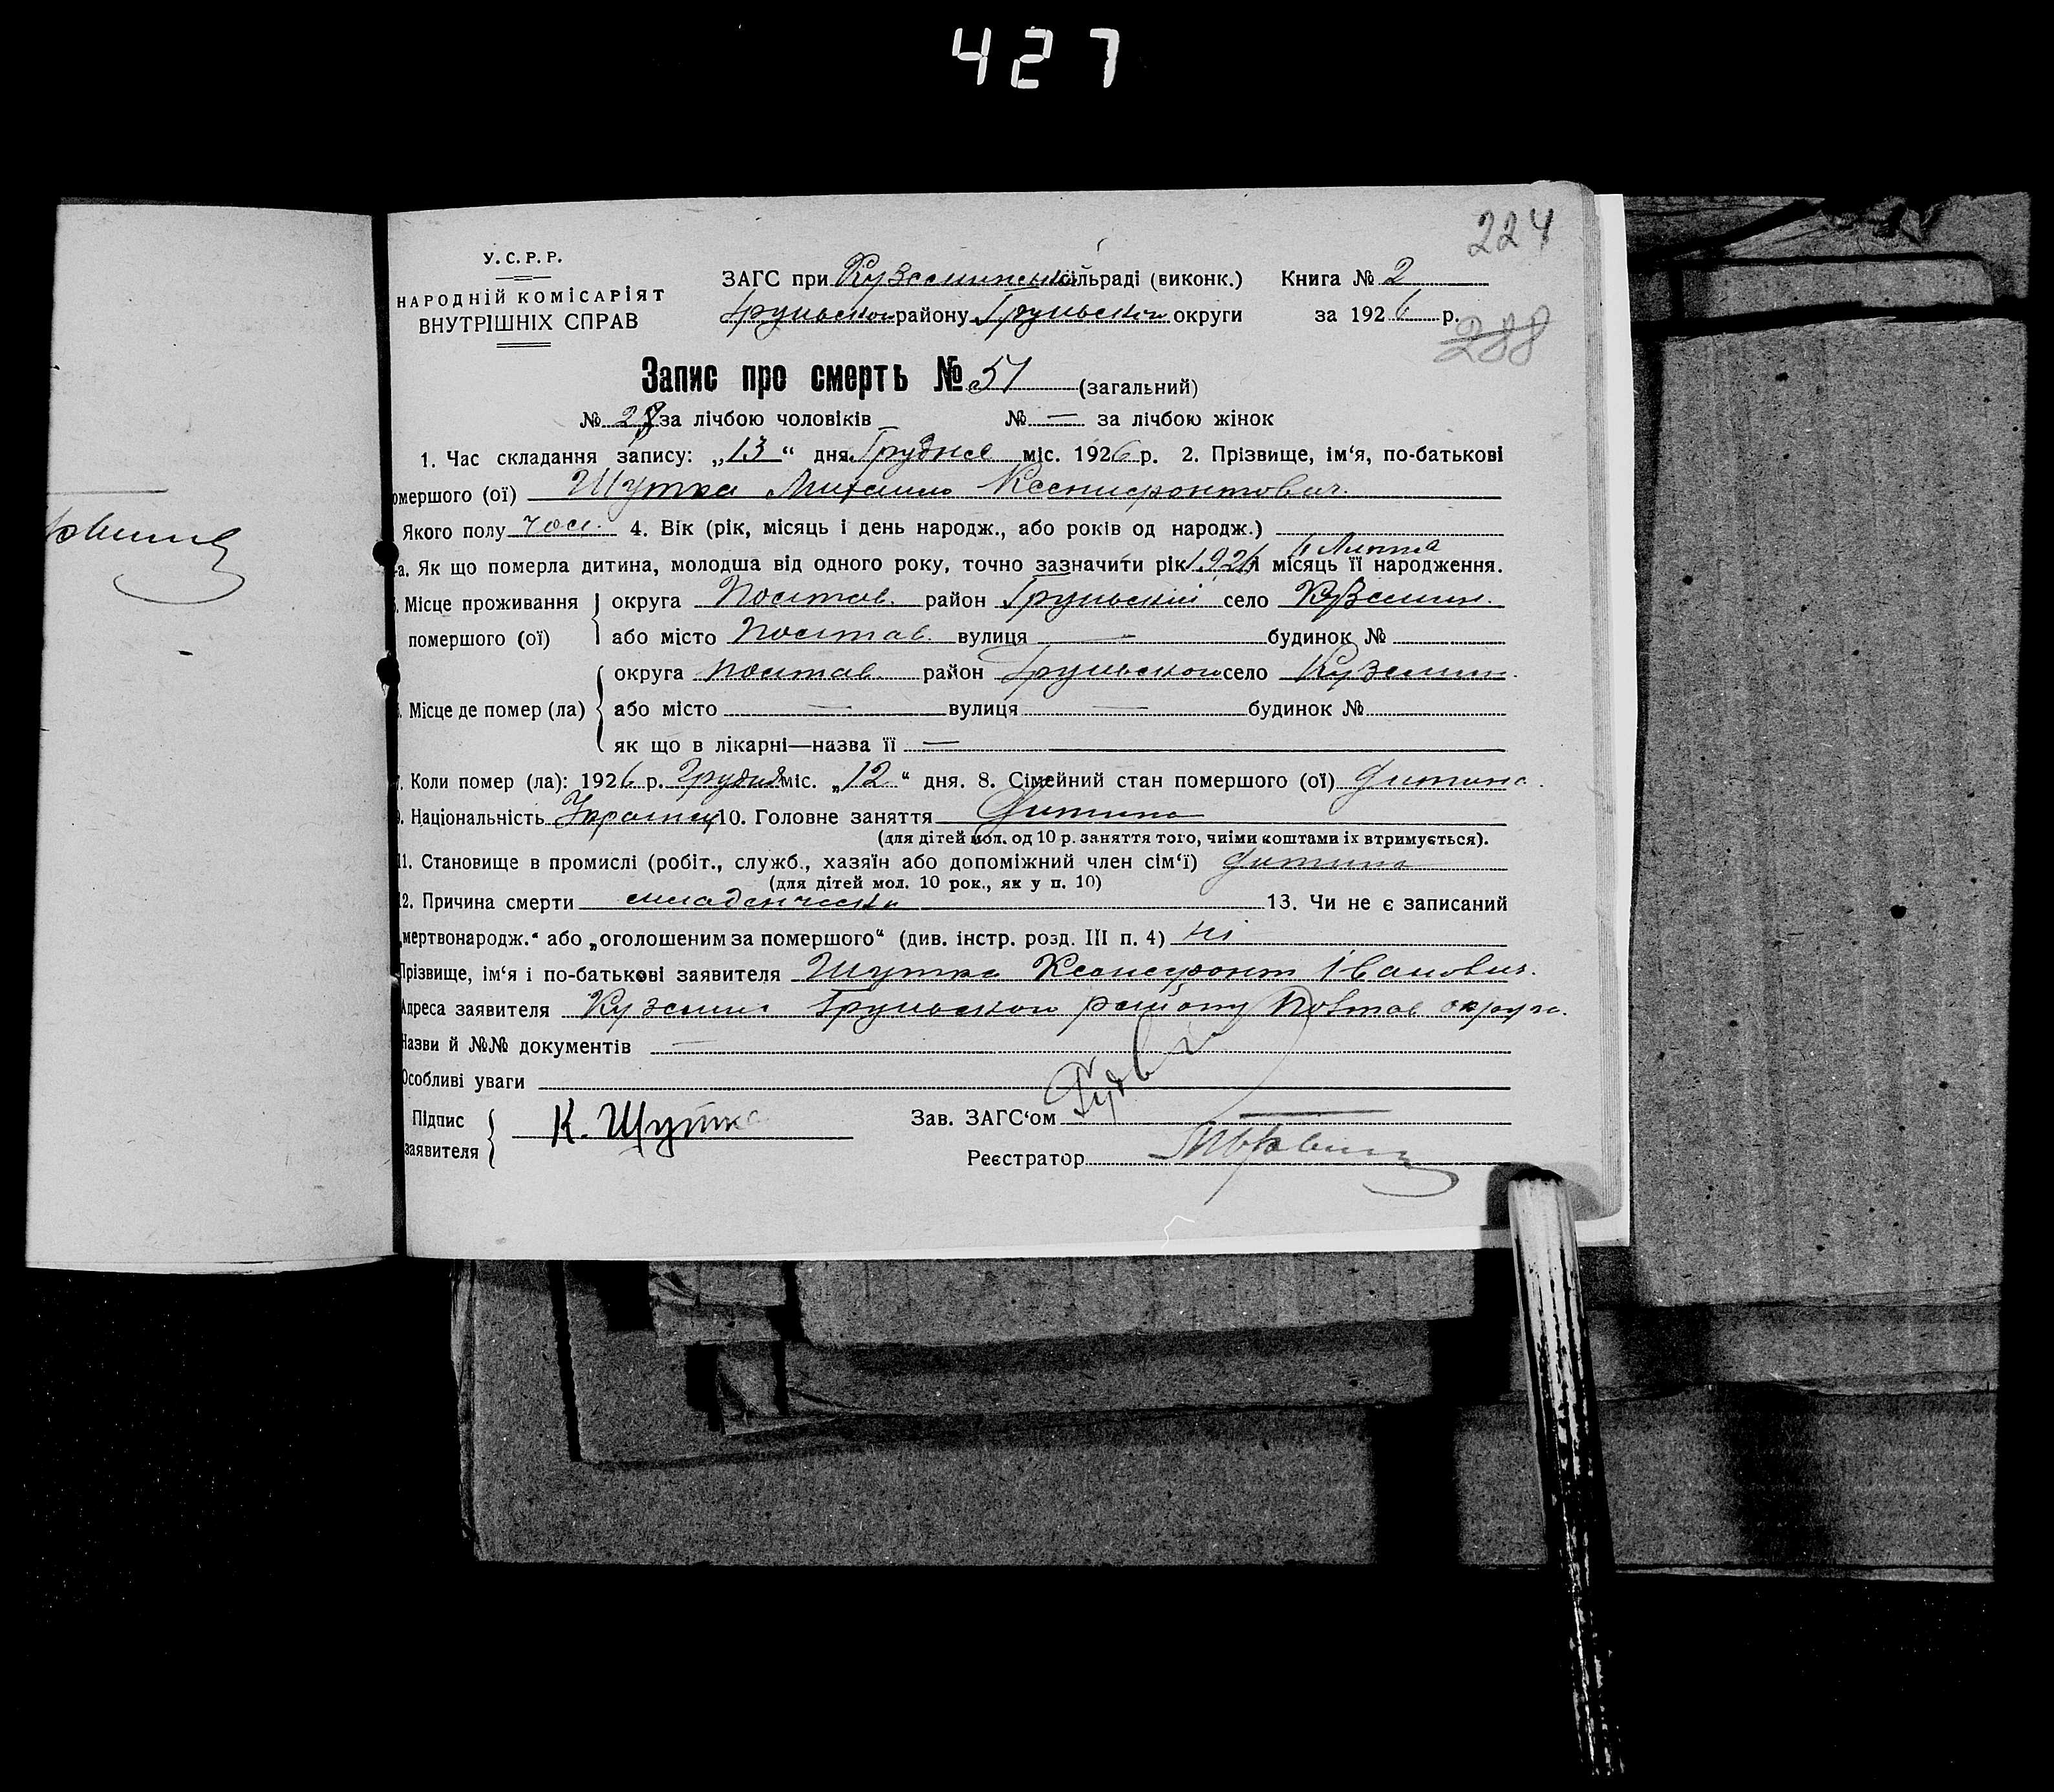 427
224
У.С.Р.Р.
НАРОДНІЙ КОМІСАРІЯТ
ВНУТРІШНІХ СПРАВ
ЗАГС при сільраді (виконк.) Книга № 2
району округи за 1926 р.
288
Запис про смерть № 51 (загальний)
№ 28 за лічбою чоловіків № — за лічбою жінок
1. Час складання запису: „13“ дня Грудня міс. 1926 р. 2. Прізвище, ім‘я, по-батькові
омершого (ої) Шутка Михайло Ксенифонтович
Якого полу чол. 4. Вік (рік, місяць і день народж., або років од народж.)
6 Липня
-а. Як що померла дитина, молодша від одного року, точно зазначити рік 192 й місяць її народження.
Місце проживання округа Полтав. район Грунський село Куземин.
помершого (ої) або місто Полтав. вулиця — будинок №
округа Полтав. район село Куземин.
Місце де помер (ла) або місто — вулиця — будинок №
як що в лікарні—назва її —
7. Коли помер (ла): 1926 р. Грудня міс. „12“ дня. 8. Сімейний стан помершого (ої) дитина.
9. Національність Українец 10. Головне заняття Дитина
(для дітей мол. од 10 р. заняття того, чиїми коштами їх втримується).
11. Становище в промислі (робіт., служб., хазяїн або допоміжний член сім‘ї) дитина
(для дітей мол. 10 рок., як у п. 10)
12. Причина смерти 13. Чи не є записаний
„мертвонародж.“ або „оголошеним за помершого“ (див. інстр. розд. III п. 4) ні
Прізвище, ім‘я і по-батькові заявителя Шутка Ксенофонт Іванович.
Адреса заявителя Куземин району Полтав округа.
Назви й №№ документів —
Особливі уваги
Підпис
заявителя К. Шутка Зав. ЗАГС‘ом
Реєстратор